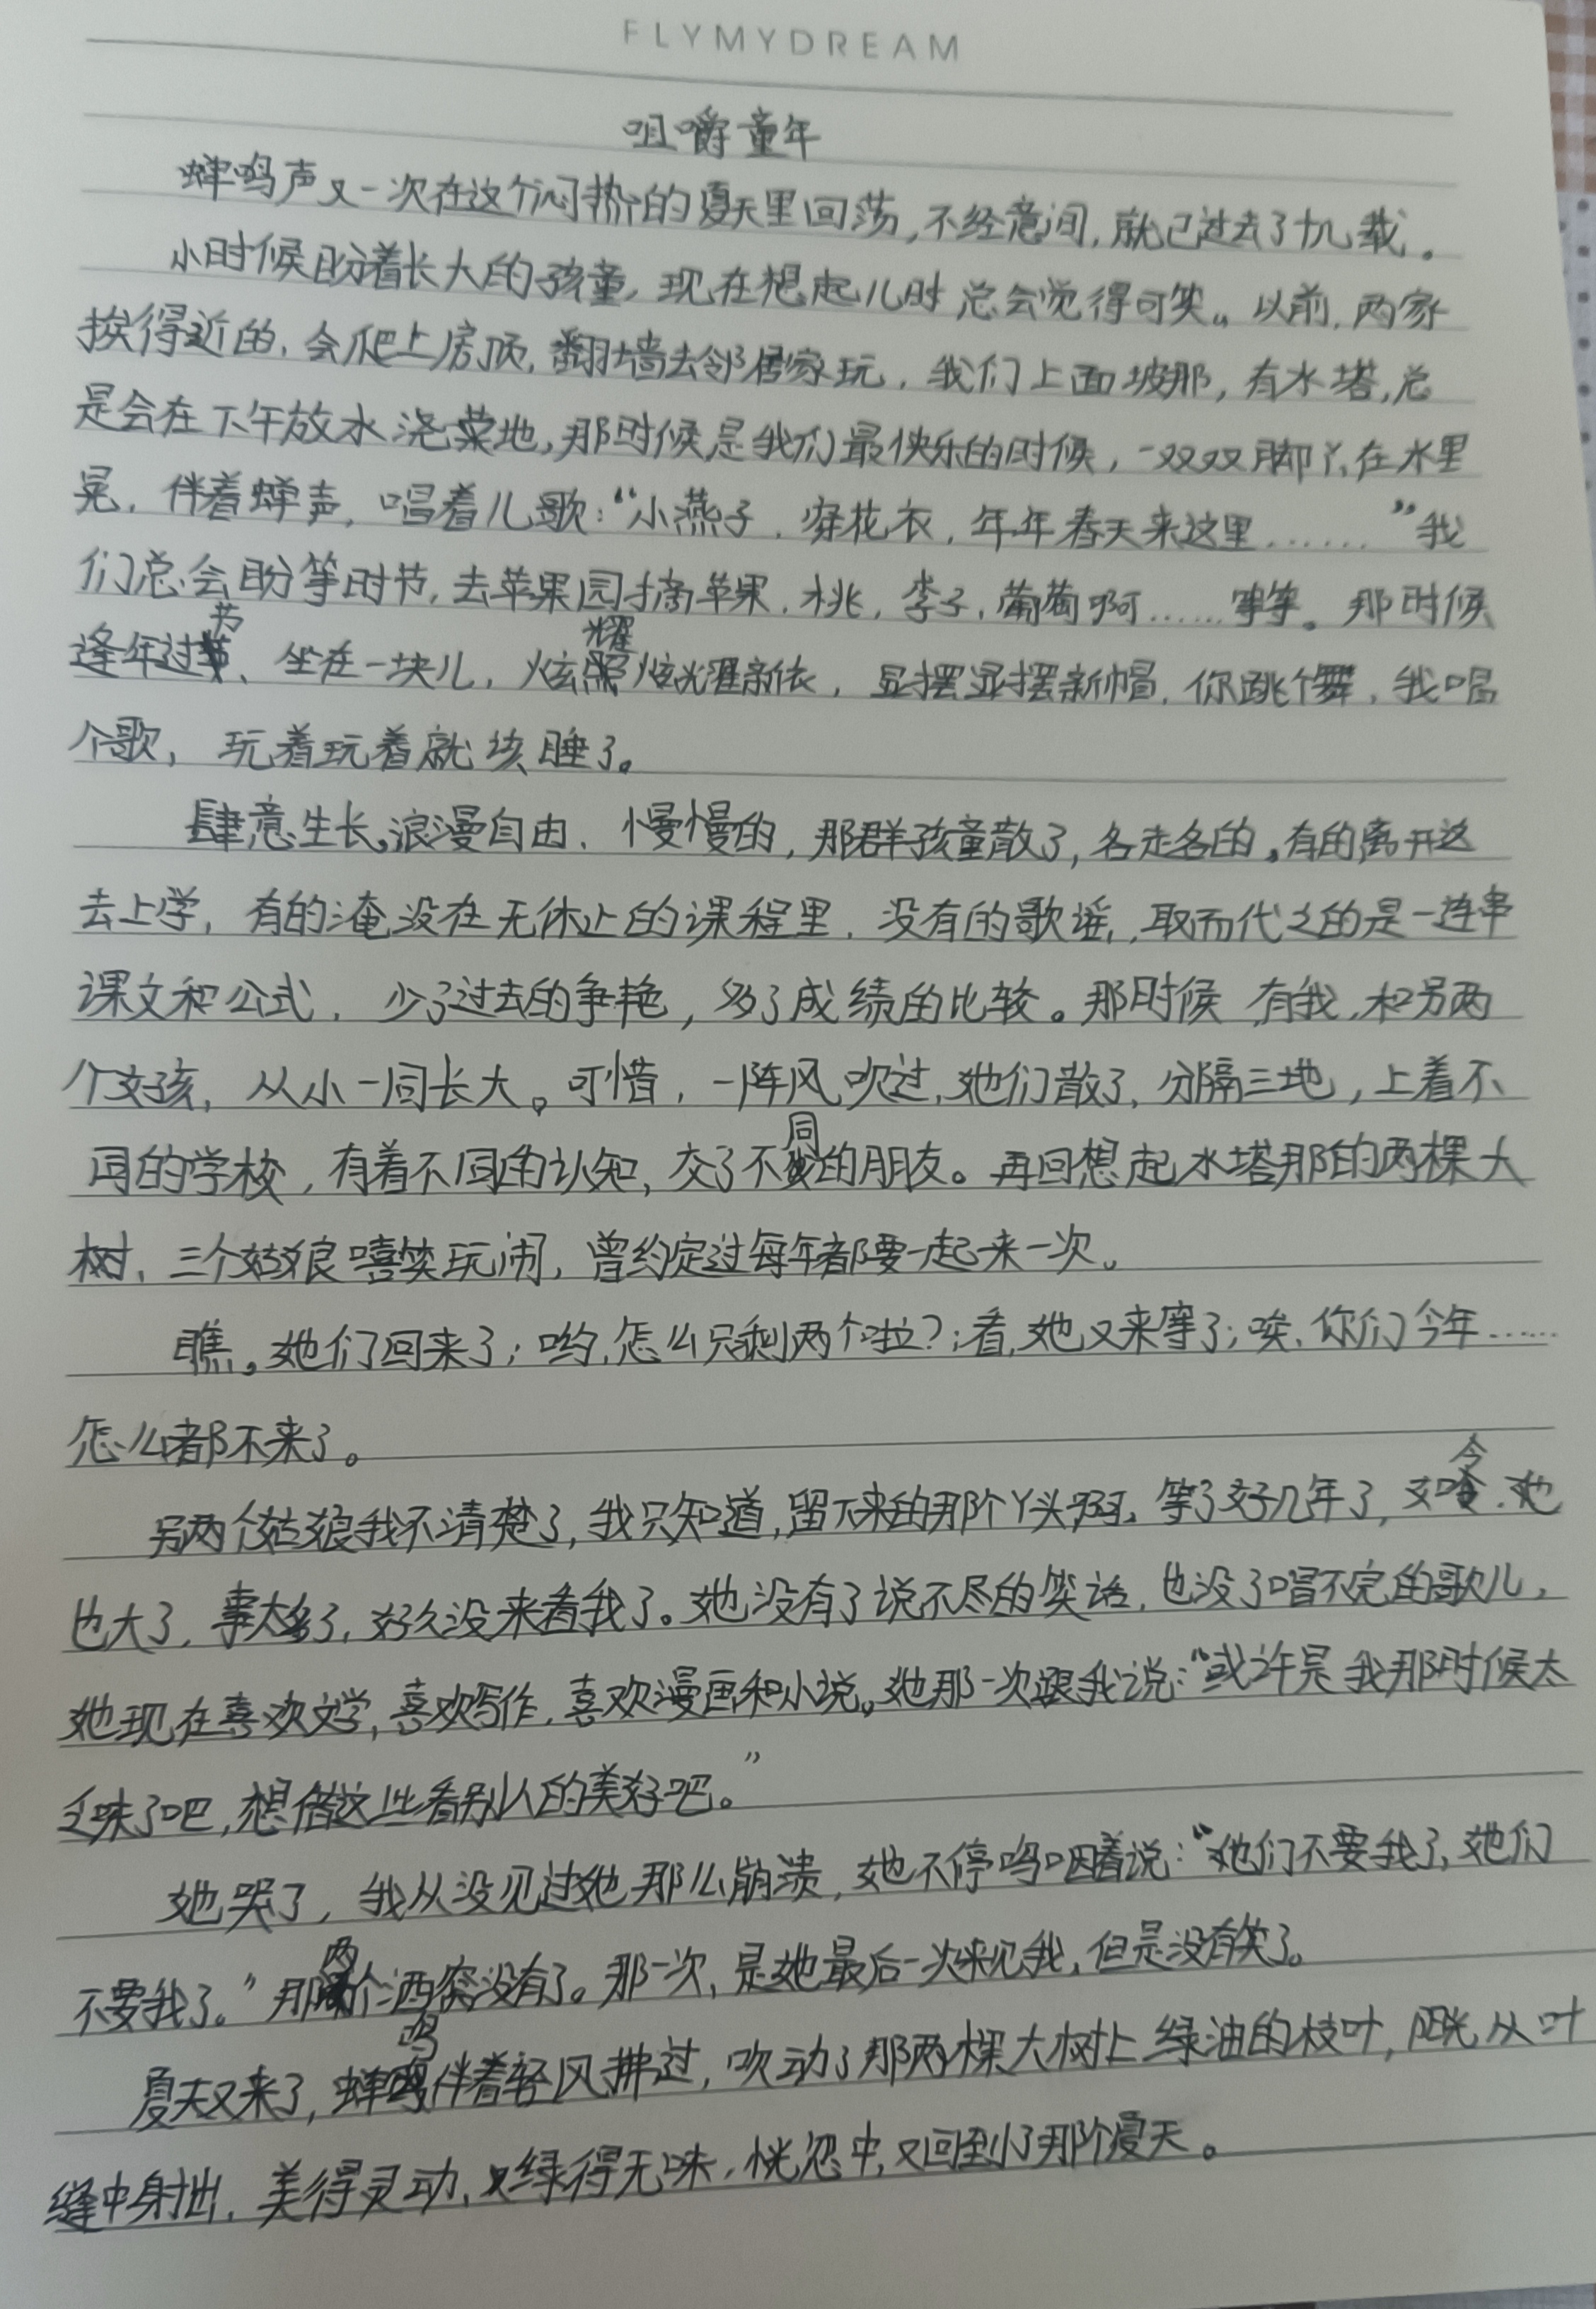 FLYMYDREAM
咀嚼童年
蝉鸣声又一次在这个闷热的夏天里回荡,不经意间,就已过去了十几载。
小时候盼着长大的孩童,现在想起儿时总会觉得可笑。以前,两家
挨得近的,会爬上房顶,翻墙去邻居家玩,我们上面坡那,有水塔,总
是会在下午放水浇菜地,那时候是我们最快乐的时候,一双双脚丫在水里
晃,伴着蝉声,唱着儿歌:“小燕子,穿花衣,年年春天来这里……”我
们总会盼等时节,去苹果园摘苹果,桃,李子,葡萄啊……等等。那时候
逢年过节、坐在一块儿,炫耀炫耀新衣,显摆显摆新帽,你跳个舞,我唱
个歌,玩着玩着就该睡了。
肆意生长,浪漫自由,慢慢的,那群孩童散了,各走各的。有的离开这
去上学,有的淹没在无休止的课程里,没有的歌谣,取而代之的是一连串
课文和公式,少了过去的争艳,多了成绩的比较。那时候有我,和另两
个女孩,从小一同长大。可惜,一阵风吹过,她们散了,分隔三地,上着不
同的学校,有着不同的认知,交了不同的朋友。再回想起水塔那的两棵大
树,三个姑娘嘻笑玩闹,曾约定过每年都要一起来一次。
瞧。她们回来了;哟,怎么只剩两个啦?;看,她又来等了;唉,你们今年……
怎么都不来了。
另两个姑娘我不清楚了,我只知道,留下来的那个丫头啊,等了好几年了,如今,她
也大了,事太多了,好久没来看我了。她没有了说不尽的笑话,也没了唱不完的歌儿,
她现在喜欢文学,喜欢写作,喜欢漫画和小说。她那一次跟我说:“或许是我那时候太
乏味了吧,想借这些看别人的美好吧。”
她哭了,我从没见过她那么崩溃,她不停呜咽着说:“她们不要我了,她们
不要我了。”那两个酒窝没有了。那一次,是她最后一次来见我,但是没有笑了。
夏天又来了,蝉鸣伴着轻风拂过,吹动了那两棵大树上绿油的枝叶,阳光从叶
缝中射出,美得灵动,又绿得无味,恍忽中,又回到了那个夏天。